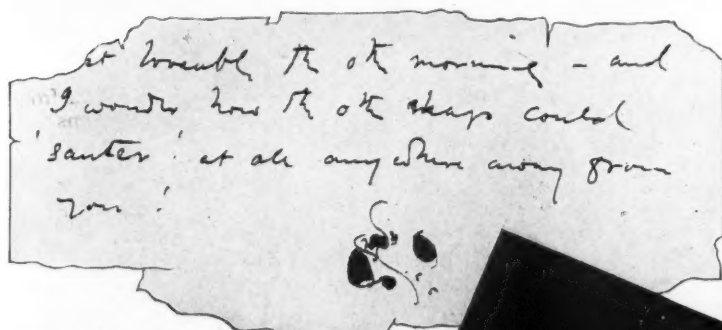 loveable th oth morning – and
I wonder how th oth chaps could
'saunter' at all anywhere away from
you!